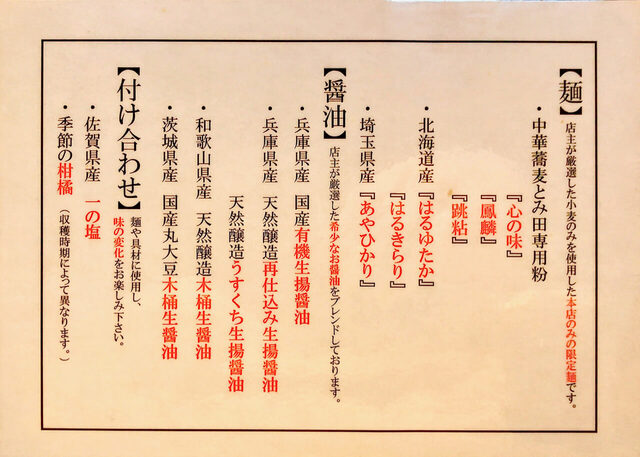 【麺】店主が厳選した小麦のみを使用した本店のみの限定麺です。
・中華蕎麦とみ田専用粉
『心の味』
『鳳麟』
『跳粘』
・北海道産『はるゆたか』
『はるきらり』
・埼玉県産『あやひかり』
【醤油】店主が厳選した希少なお醤油をブレンドしております。
・兵庫県産 国産有機生揚醤油
・兵庫県産 天然醸造再仕込み生揚醤油
天然醸造うすくち生揚醤油
・和歌山県産 天然醸造木桶生醤油
・茨城県産 国産丸大豆木桶生醤油
【付け合わせ】麺や具材に使用し、
味の変化をお楽しみ下さい。
・佐賀県産 一の塩
・季節の柑橘（収穫時期によって異なります。）